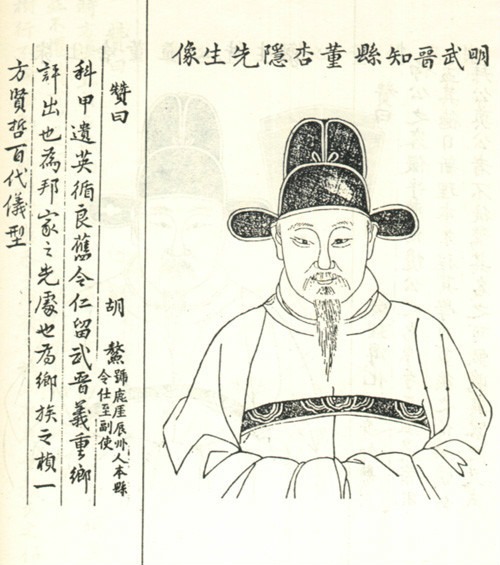 明武晉知縣董杏隱先生像
贊曰
胡鰲號鹿崖辰州人本縣
令仕至副使
科甲遺英循良舊令仁留武晉義重鄉
評出也為邦家之先處也為鄉族之楨一
方賢哲百代儀型